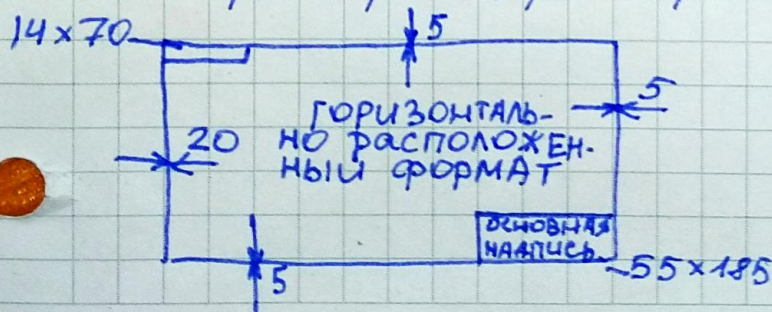 14×70
5
ГОРИЗОНТАЛЬ-
5
20
НО РАСПОЛОЖЕН-
НЫЙ ФОРМАТ
ОСНОВНАЯ
НАДПИСЬ
55×185
5